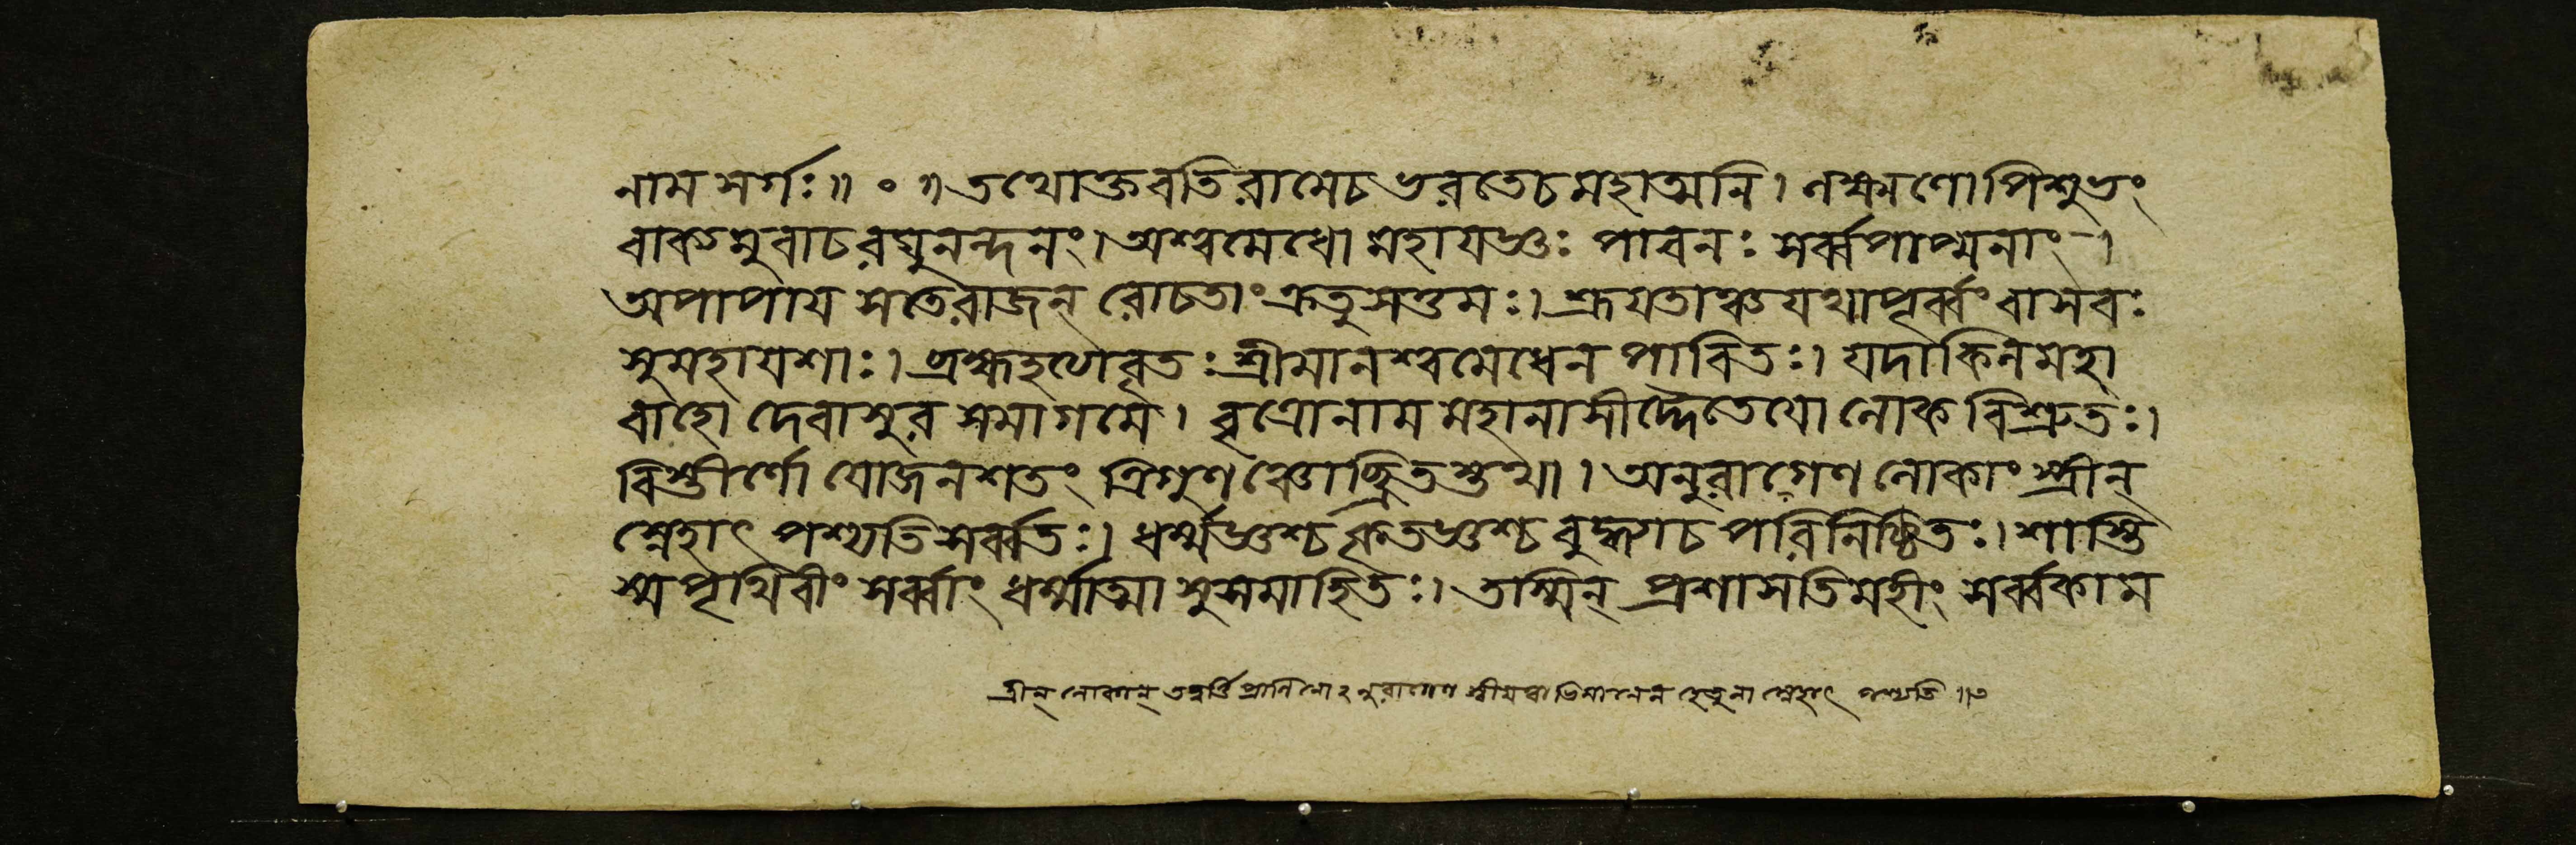 নাম সর্গঃ॥ ॰ ॥ তথোক্তবতি রামেচ ভরতেচ মহাত্মনি। লক্ষ্মণোপি শুভং
বাক্যমুবাচ রঘুনন্দনং। অশ্বমেধো মহাযজ্ঞঃ পাবনঃ সর্ব্বপাপ্মনাং।
অপাপায সতেরাজন্ রোচতাং ক্রতুসত্তমঃ। শ্রূযতাঞ্চ যথাপূর্ব্বং বাসবঃ
সুমহাযশাঃ। ব্রহ্মহত্যাবৃতঃ শ্রীমানশ্বমেধেন পাবিতঃ। যদাকিলমহা
বাহো দেবাসুর সমাগমে। বৃত্রোনাম মহানাসীদ্দৈতেযো লোক বিশ্রুতঃ।
বিস্তীর্ণো যোজনশতং ত্রিগুণঞ্চোচ্ছ্রিতস্তথা। অনুরাগেণ লোকাংস্ত্রীন্
স্নেহাৎ পশ্যতিসর্ব্বতঃ। ধর্ম্মজ্ঞশ্চ কৃতজ্ঞশ্চ বুদ্ধ্যাচ পরিনিষ্ঠিতঃ। শাস্তি
স্ম পৃথিবীং সর্ব্বাং ধর্ম্মাত্মা সুসমাহিতঃ। তস্মিন্ প্রশাসতিমহীং সর্ব্বকাম
ত্রীন্ লোকান্ তদ্বর্ত্তি প্রাণিনোঽনুরাগেণ স্বীযত্বাভিমানেন হেতুনা স্নেহাৎ পশ্যতি ॥৩